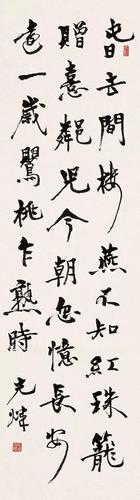 春去間樓燕不知紅珠籠
贈憙鄰兒今朝忽憶長安
遠一歲鸎桃乍熟時
光煒